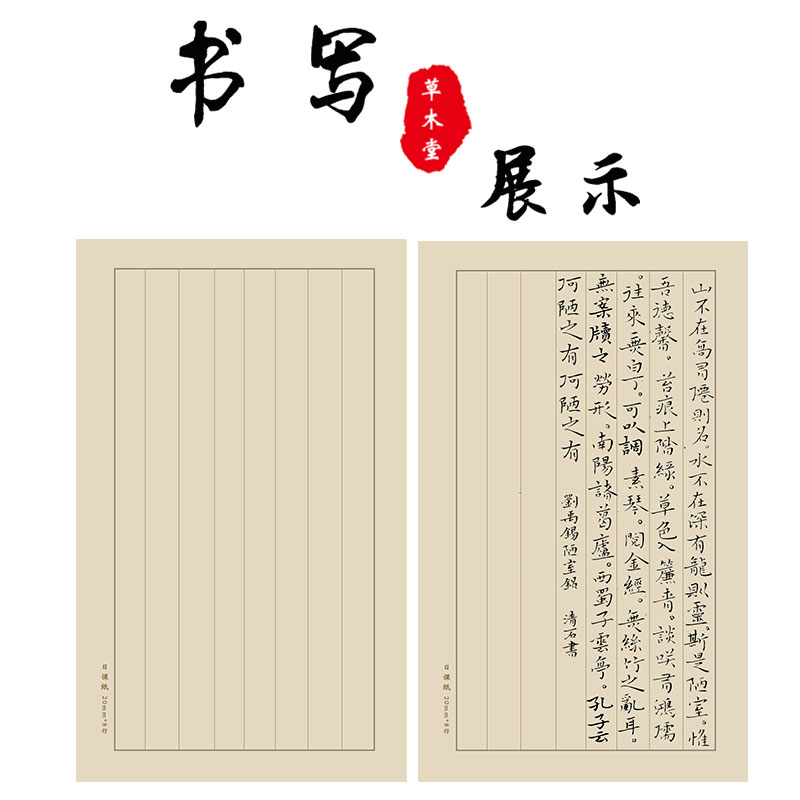 书写
草木堂
展示
日课纸 20mm*8行
山不在高有僊則名。水不在深有龍則靈。斯是陋室。惟
吾德馨。苔痕上階綠。草色入簾青。談咲有鴻儒
。往来無白丁。可以調素琴。閱金經。無絲竹之亂耳。
無案牘之勞形。南陽諸葛廬。西蜀子雲亭。孔子云
何陋之有何陋之有 劉禹錫陋室銘 清石書
日课纸 20mm*8行